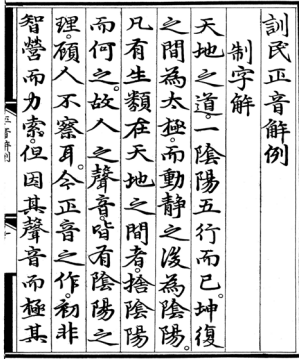 訓民正音解例
制字解
天地之道。一陰陽五行而已。坤復
之間為太極。而動静之後為陰陽。
凡有生類在天地之間者。捨陰陽
而何之。故人之聲音。皆有陰陽之
理。顧人不察耳。今正音之作。初非
智營而力索。但因其聲音而極其
正音解例